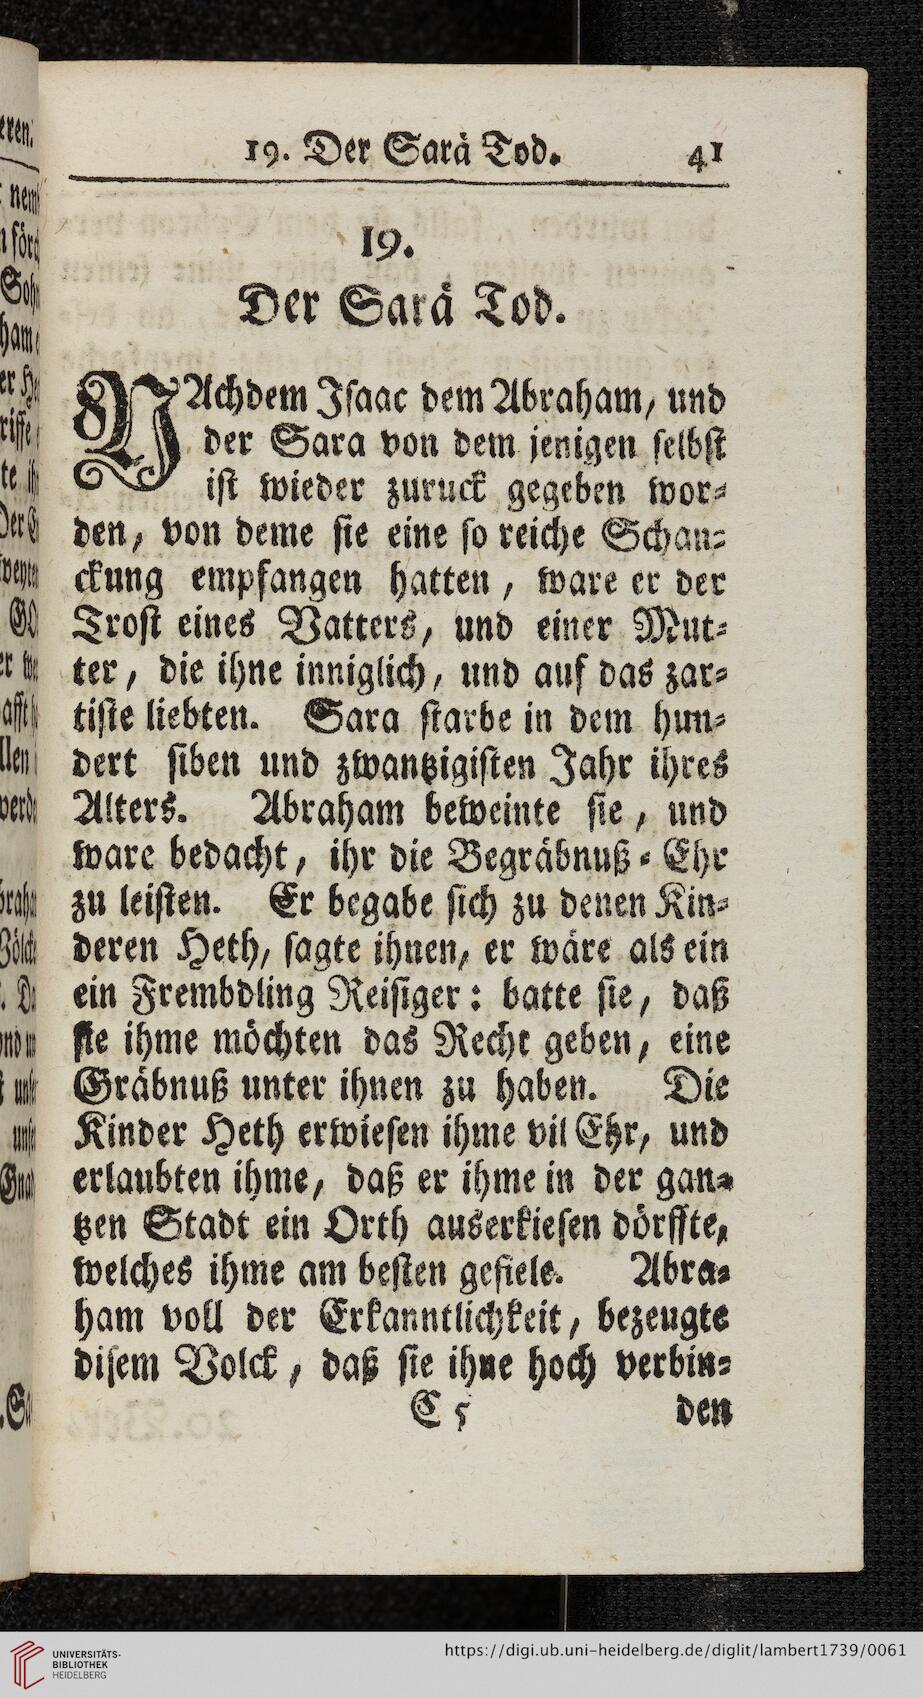 19. Der Sarä Tod. 41
19.
Der Sarä Tod.
NAchdem Isaac dem Abraham, und
der Sara von dem jenigen selbst
ist wieder zuruck gegeben wor-
den, von deme sie eine so reiche Schan-
ckung empfangen hatten, ware er der
Trost eines Vatters, und einer Mut-
ter, die ihne inniglich, und auf das zar-
tiste liebten. Sara starbe in dem hun-
dert siben und zwantzigisten Jahr ihres
Alters. Abraham beweinte sie, und
ware bedacht, ihr die Begräbnuß-Ehr
zu leisten. Er begabe sich zu denen Kin-
deren Heth, sagte ihnen, er wäre als ein
ein Frembdling Reisiger: batte sie, daß
sie ihme möchten das Recht geben, eine
Gräbnuß unter ihnen zu haben. Die
Kinder Heth erwiesen ihme vil Ehr, und
erlaubten ihme, daß er ihme in der gan-
tzen Stadt ein Orth auserkiesen dörffte,
welches ihme am besten gefiele. Abra-
ham voll der Erkanntlichkeit, bezeugte
disem Volck, daß sie ihne hoch verbin-
C 5 den
UNIVERSITÄTS-
BIBLIOTHEK
HEIDELBERG
https://digi.ub.uni-heidelberg.de/diglit/lambert1739/0061